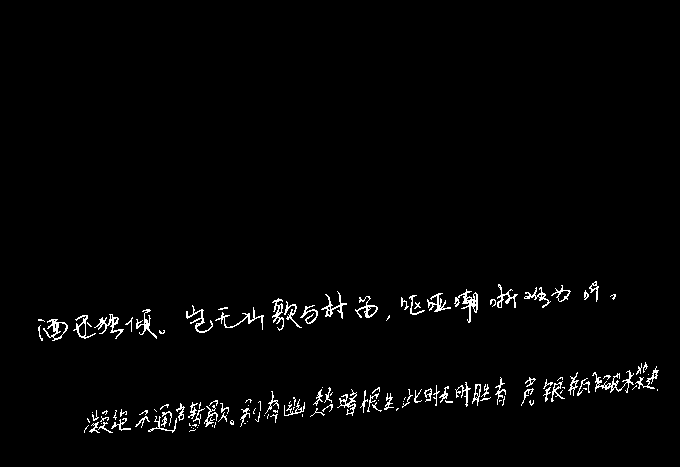 酒还独倾。岂无山歌与村笛,呕哑嘲哳难为听。
凝绝不通声暂歇。别有幽愁暗恨生,此时无声胜有声银瓶乍破水浆迸